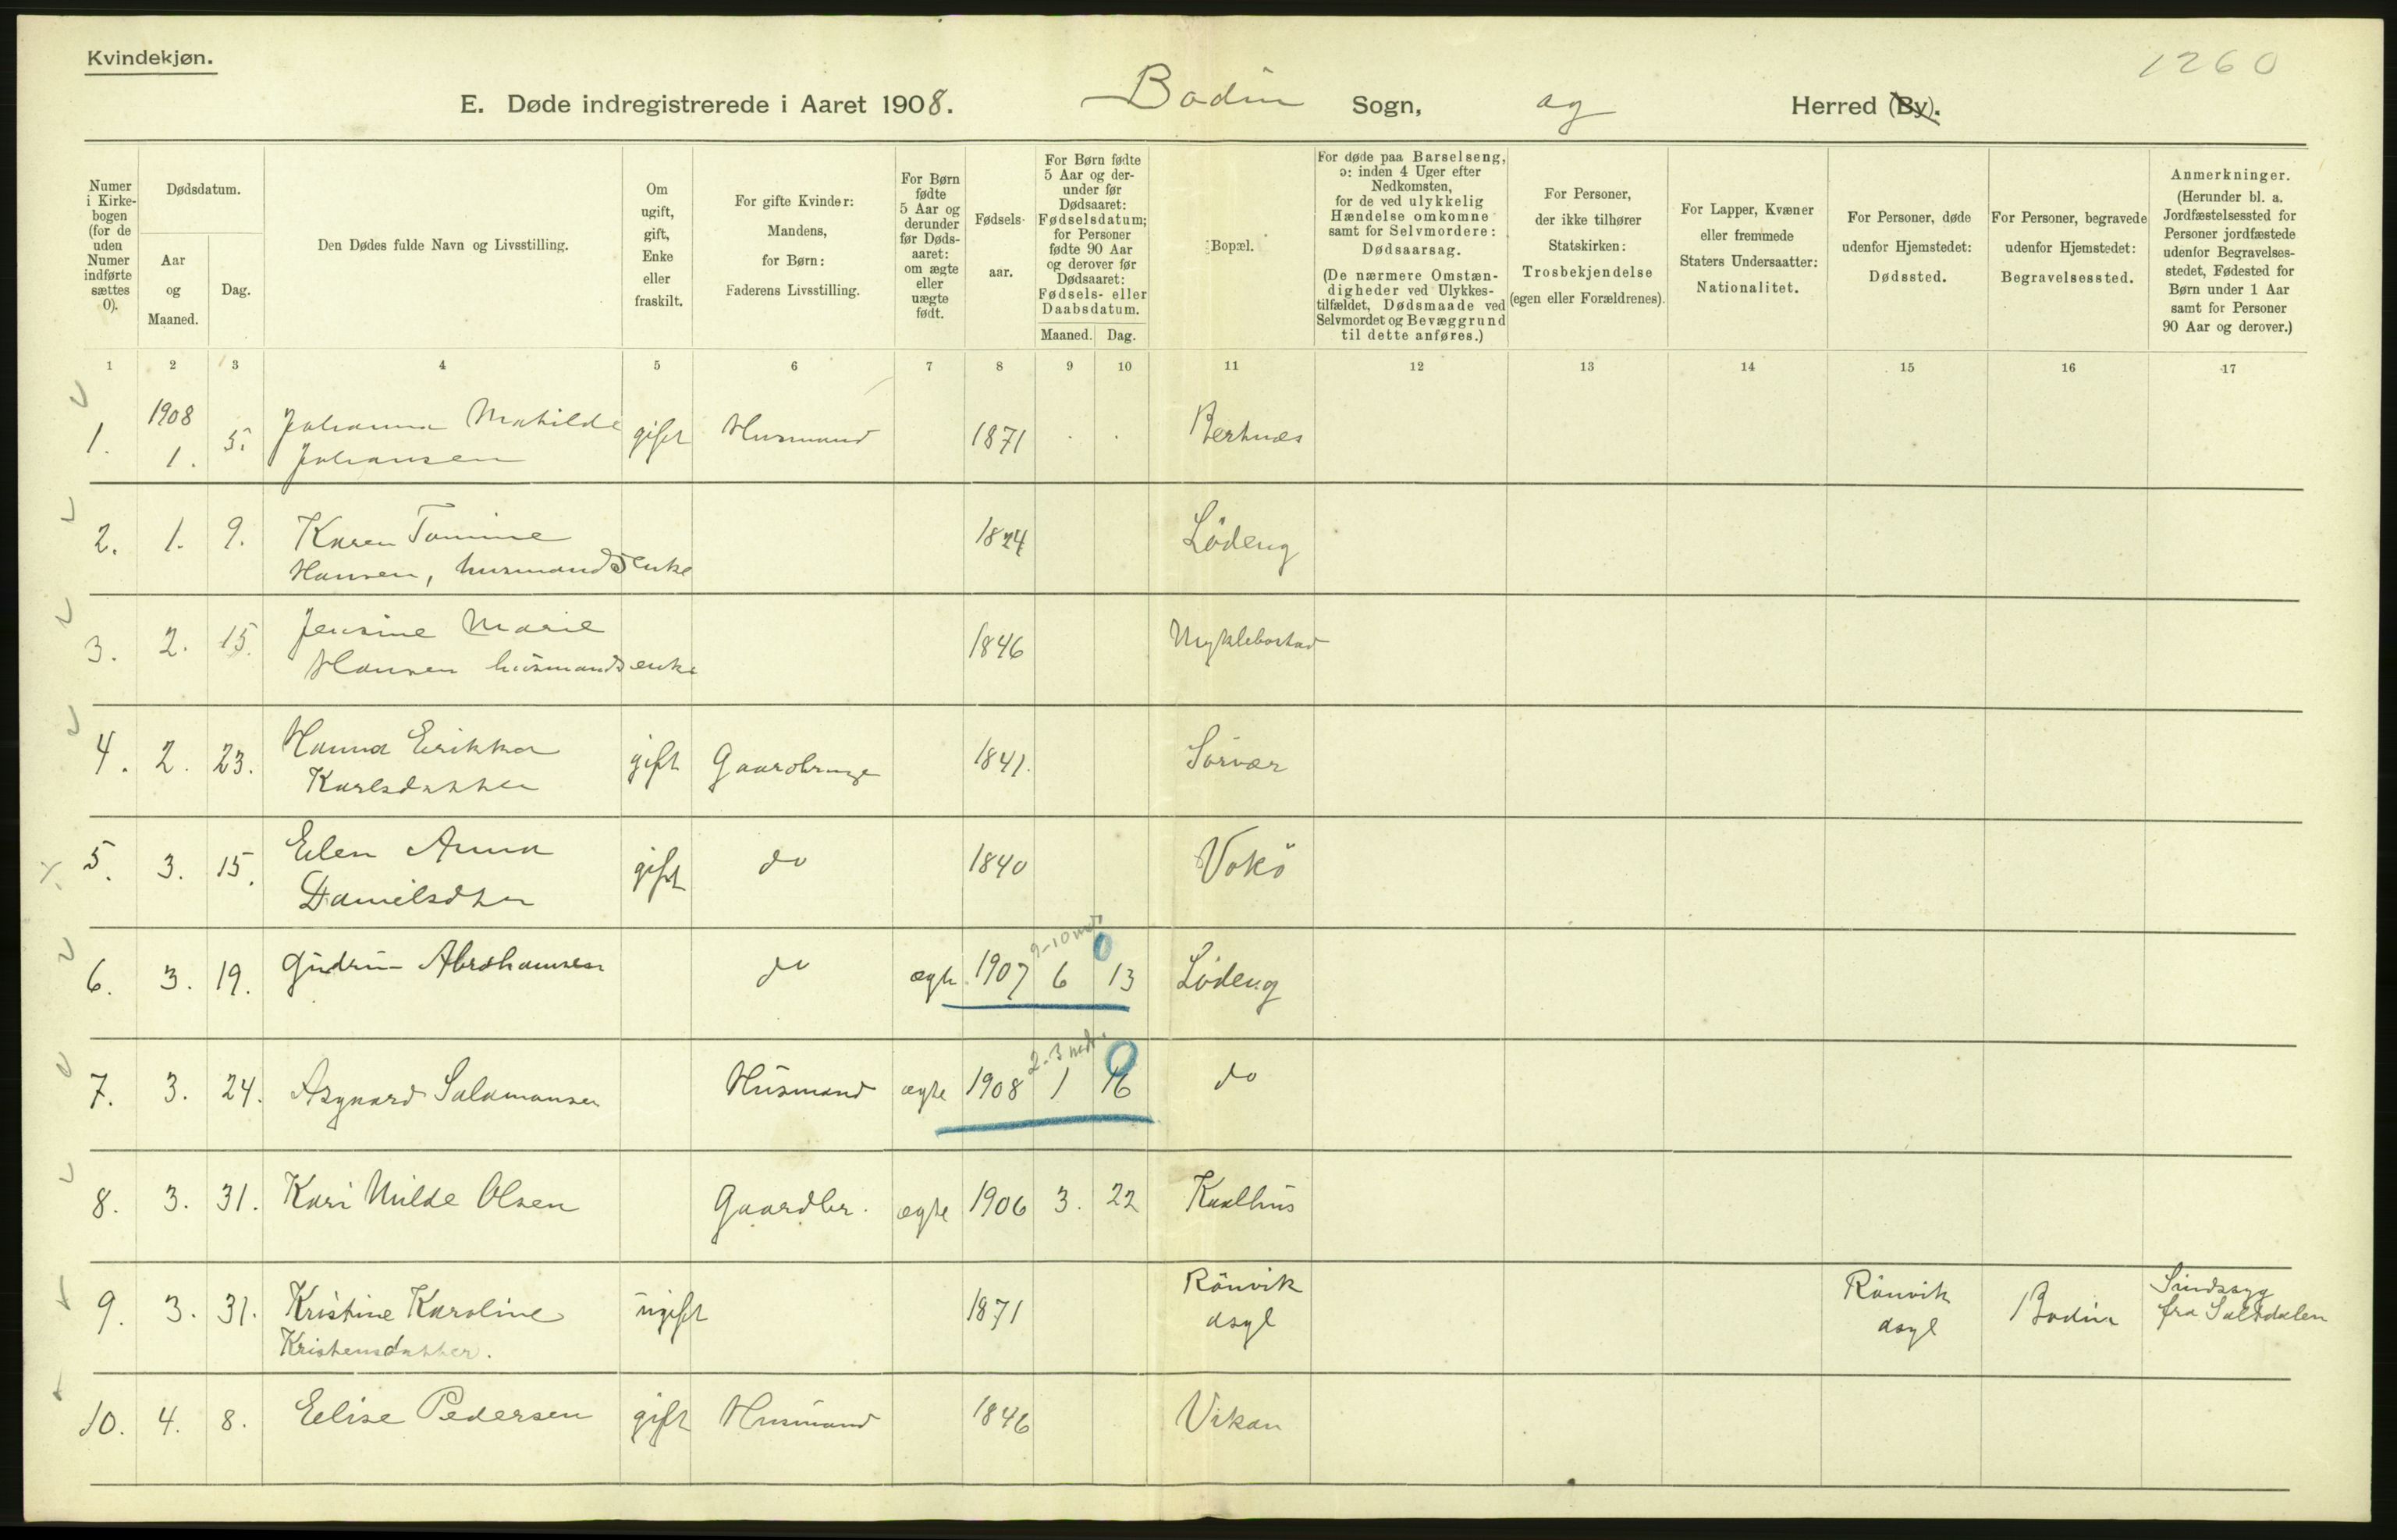 Kvindekjøn.
1260
E. Døde indregistrerede i Aaret 1908. Bodin Sogn, og Herred (By).
Numer i Kirke-bogen (for de uden Numer indførte sættes 0).
Dødsdatum.
Aar og Maaned.
Dag.
Den Dødes fulde Navn og Livsstilling.
Om ugift, gift, Enke eller fraskilt.
For gifte Kvinder: Mandens, for Børn: Faderens Livsstilling.
For Børn fødte 5 Aar og derunder før Døds-aaret: om ægte eller uægte født.
Fødsels-aar.
For Børn fødte 5 Aar og der-under før Dødsaaret: Fødselsdatum; for Personer fødte 90 Aar og derover før Dødsaaret: Fødsels- eller Daabsdatum.
Maaned. Dag.
Bopæl.
For døde paa Barselseng, ɔ: inden 4 Uger efter Nedkomsten, for de ved ulykkelig Hændelse omkomne samt for Selvmordere: Dødsaarsag. (De nærmere Omstæn-digheder ved Ulykkes-tilfældet, Dødsmaade ved Selvmordet og Bevæggrund til dette anføres.)
For Personer, der ikke tilhører Statskirken: Trosbekjendelse (egen eller Forældrenes).
For Lapper, Kvæner eller fremmede Staters Undersaatter: Nationalitet.
For Personer, døde udenfor Hjemstedet: Dødssted.
For Personer, begravede udenfor Hjemstedet: Begravelsessted.
Anmerkninger. (Herunder bl. a. Jordfæstelsessted for Personer jordfæstede udenfor Begravelses-stedet, Fødested for Børn under 1 Aar samt for Personer 90 Aar og derover.)
1 2 3 4 5 6 7 8 9 10 11 12 13 14 15 16 17
1. 1908 1. 5. Johanna Matilde Johansen gift Husmand 1871 Bertnes
2. 1. 9. Karen Tomine Hansen, husmandsenke 1824 Lödeng
3. 2. 15. Jensine Marie Hansen husmandsenke 1846 Myklebostad
4. 2. 23. Hanna Erikka Karlsdatter gift Gaardbruger 1841. Sörvær
5. 3. 15. Elen Anna Danielsdtr gift do 1840 Vokö
6. 3. 19. Gudrun Abrahamsen do ægte 1907 6 13 Lödeng
9-10 mdr 0
7. 3. 24. Asgnard Salamonsen Husmand ægte 1908 1 16 do
2-3 mdr. 0
8. 3. 31. Kari Milde Olsen Gaardbr. ægte 1906 3. 22 Kvalhus
9. 3. 31. Kristine Karoline Kristensdatter. ugift 1871 Rönvik asyl Rönvik asyl Bodin Sindssyg fra Saltdalen
10. 4. 8. Elise Pedersen gift Husmand 1846 Vikan